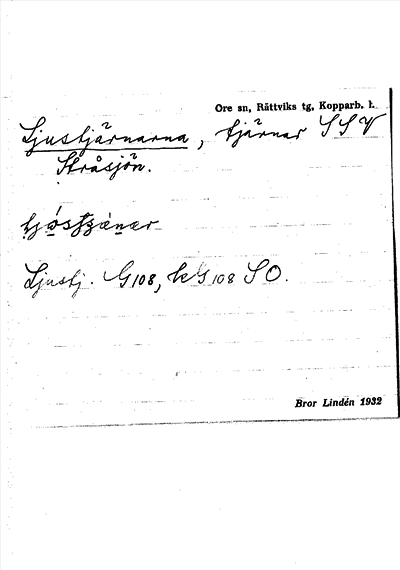 Ore sn, Rättviks tg, Kopparb. l.
Ljustjärnarna, tjärnar SSV
Stråsjön.
Ljustj. G108, kG108 SO.
Bror Lindén 1932